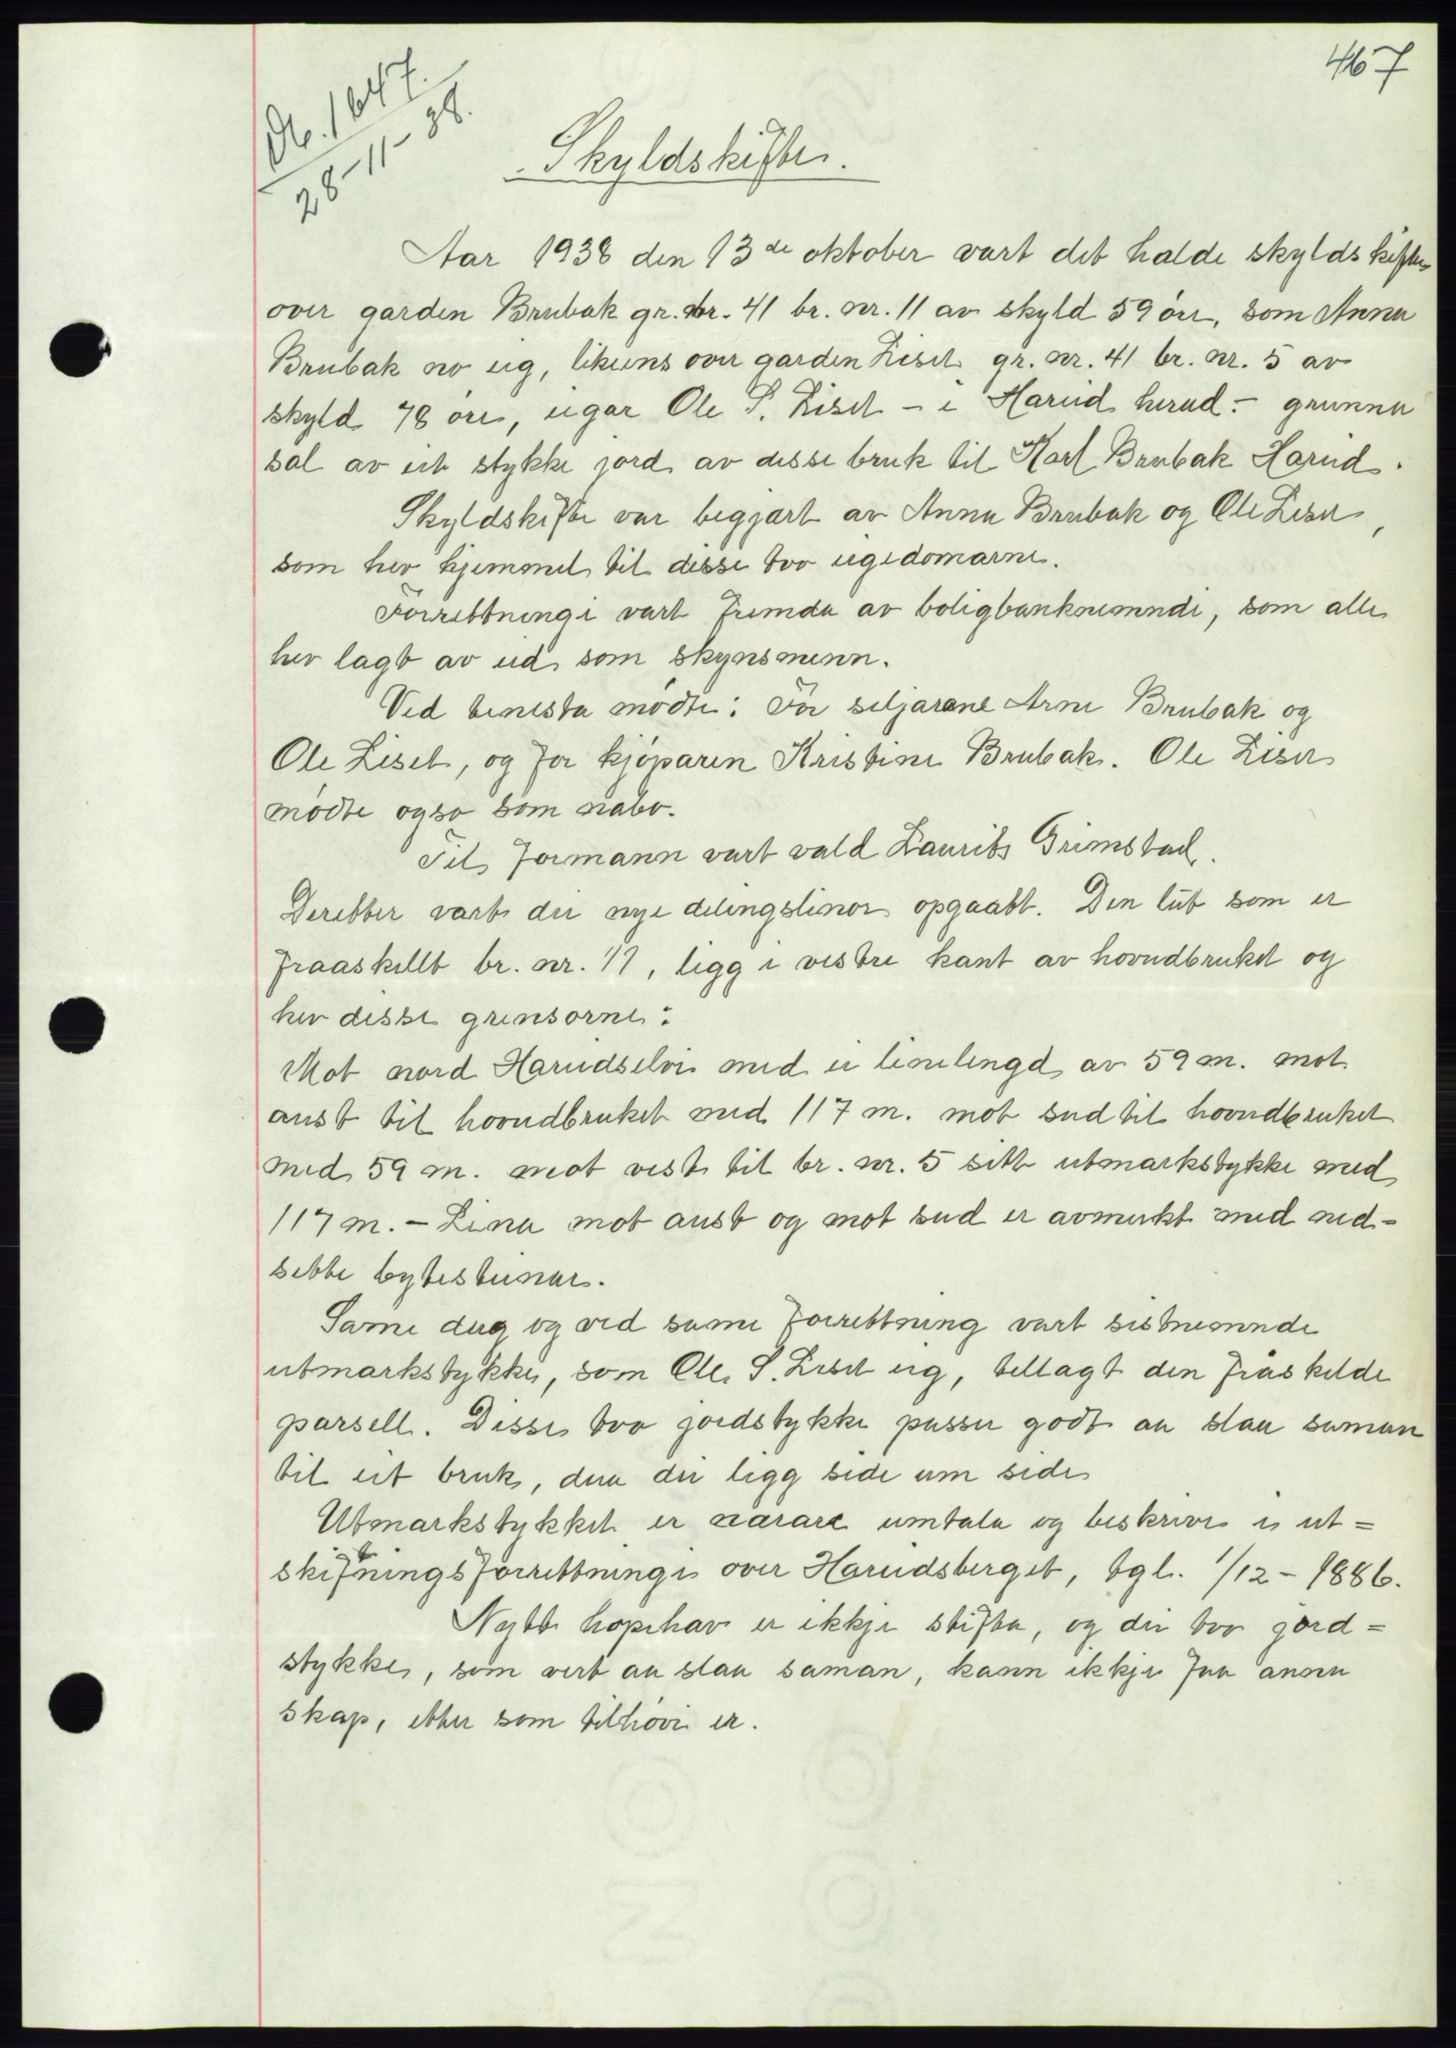 467
Db. 1647.
28-11-38.
Skyldskifte.
Aar 1938 den 13de oktober vart det halde skyldskifte
over garden Brubak gr. nr. 41 br. nr. 11 av skyld 59 öre, som Anna
Brubak no eig, likeens over garden Liset gr. nr. 41 br. nr. 5 av
skyld 78 öre, eigar Ole S. Liset - i Hareid herad. - grunna
sal av eit stykke jord av desse bruk til Karl Brubak Hareid.
Skyldskifte var begjært av Anna Brubak og Ole Liset,
som hev hjemmel til desse tvo eigedomarne.
Forrettningi vart fremda av boligbanknemndi, som alle
hev lagt av eid som skynsmenn.
Ved tenesta mödte: For seljarane Arne Brubak og
Ole Liset, og for kjöparen Kristine Brubak. Ole Liset
mödte ogso som nabo.
Til formann vart vald Laurits Grimstad.
Deretter vart dei nye delingslinor opgaatt. Den lut som er
fraaskillt br. nr. 11, ligg i vestre kant av hovudbruket og
hev desse grensorne:
Mot nord Hareidselvi med ei linelengd av 59 m. mot
aust til hovudbruket med 117 m. mot sud til hovudbruket
med 59 m. mot vest til br. nr. 5 sitt utmarkstykke med
117 m. - Lina mot aust og mot sud er avmerkt med ned-
sette bytesteinar.
Same dag og ved same forrettning vart sistnemnde
utmarkstykke, som Ole S. Liset eig, tillagt den fråskilde
parsell. Desse tvo jordstykke passer godt aa slaa saman
til eit bruk, daa dei ligg side um side
Utmarkstykket er nærare umtala og beskrive i ut=
skiftningsforrettningi over Hareidsberget, tgl. 1/12 - 1886.
Nytt hopehav er ikkje stifta, og dei tvo jord=
stykke, som vert aa slaa saman, kann ikkje faa anna
skap, etter som tilhövi er.